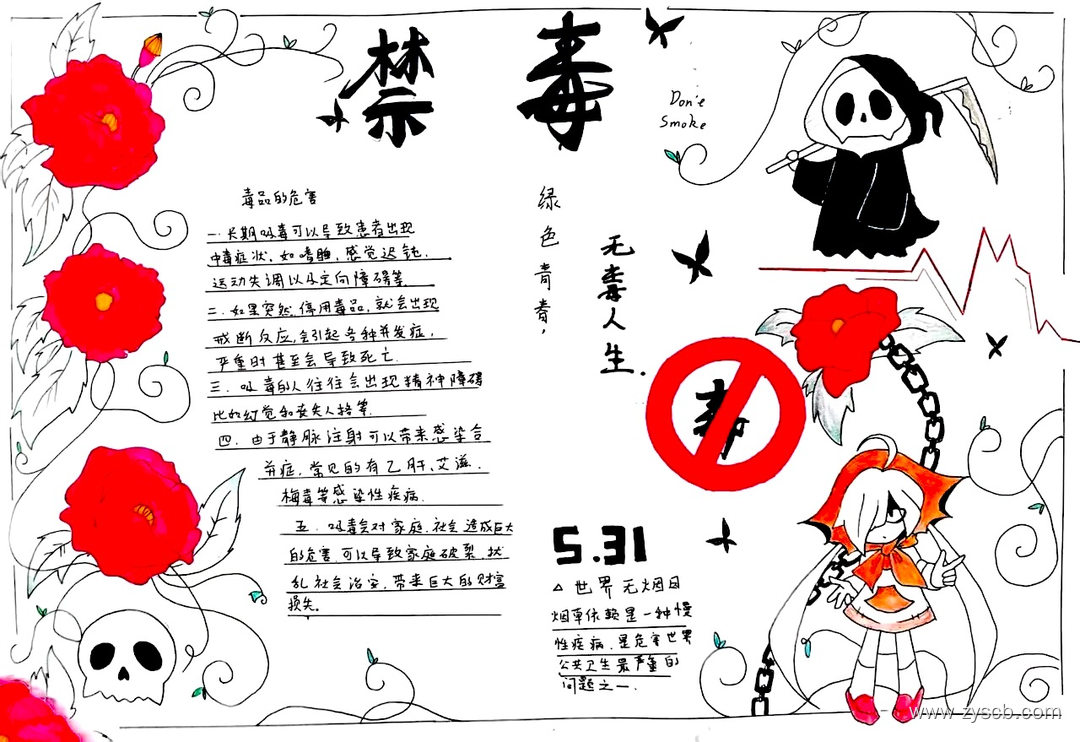 禁毒
Don'e
Smoke
毒品的危害
一.长期吸毒可以导致患者出现
中毒症状，如嗜睡，感觉迟钝，
运动失调以及定向障碍等.
二.如果突然停用毒品，就会出现
戒断反应，会引起各种并发症，
严重时甚至会导致死亡.
三.吸毒的人往往会出现精神障碍
比如幻觉和丧失人格等.
四.由于静脉注射可以带来感染合
并症，常见的有乙肝、艾滋、
梅毒等感染性疾病.
五.吸毒会对家庭、社会造成巨大
的危害，可以导致家庭破裂，扰
乱社会治安，带来巨大的财富
损失。
绿色青春，
无毒人生.
毒
5.31
△世界无烟日
烟草依赖是一种慢
性疾病，是危害世界
公共卫生最严重的
问题之一.
www.zyscb.com